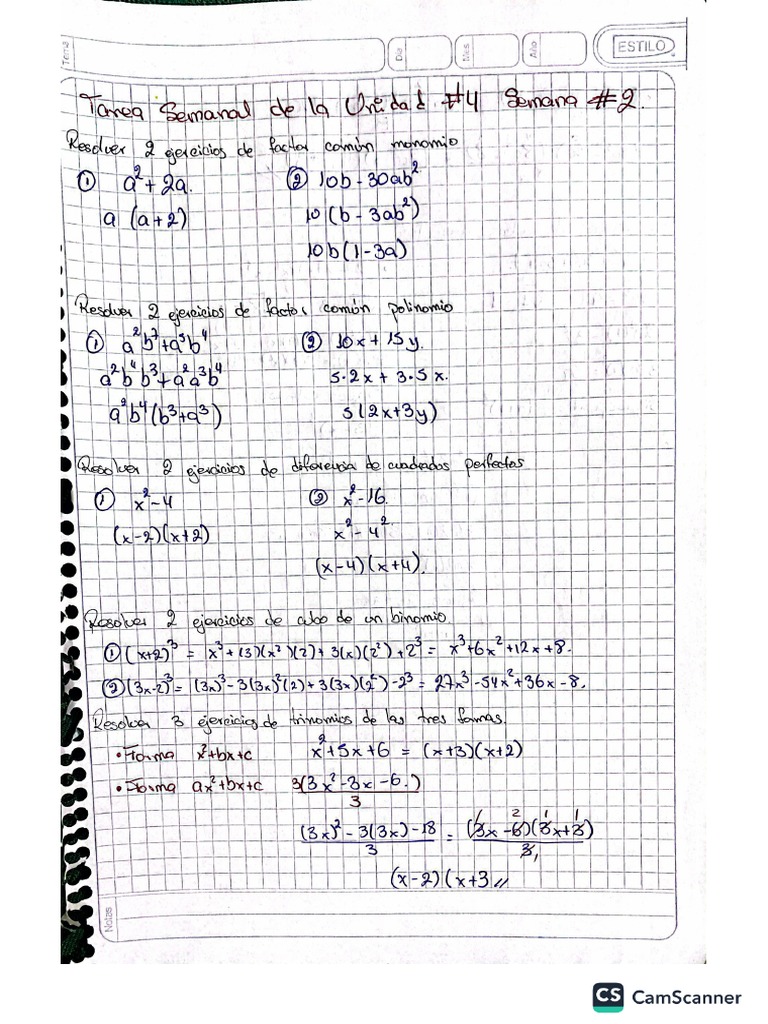 Tema
Dia
Mes
Año
ESTILO
Tarea Semanal de la Unidad #4 Semana #2.
Resolver 2 ejercicios de factor común monomio
① a²+2a. ② 10b-30ab²
a (a+2) 10(b-3ab²)
10b(1-3a)
Resolver 2 ejercicios de factor común polinomio
① a²b⁷+a⁵b⁴ ② 10x+15y.
a²b⁴b³+a²a³b⁴ 5·2x+3·5x.
a²b⁴(b³+a³) 5(2x+3y)
Resolver 2 ejercicios de diferencia de cuadrados perfectos
① x²-4 ② x²-16.
(x-2)(x+2) x²-4².
(x-4)(x+4).
Resolver 2 ejercicios de cubo de un binomio.
① (x+2)³ = x³+(3)(x²)(2)+3(x)(2²)+2³ = x³+6x²+12x+8.
② (3x-2)³=(3x)³-3(3x)²(2)+3(3x)(2²)-2³=27x³-54x²+36x-8.
Resolver 3 ejercicios de trinomios de las tres formas.
• Forma x²+bx+c x²+5x+6 = (x+3)(x+2)
• Forma ax²+bx+c 3(3x²-3x-6.)
3
(3x)²-3(3x)-18 = (3x-6)(3x+3)
3 3
1 2 1 1 1
(x-2)(x+3 //
Notas
CS CamScanner